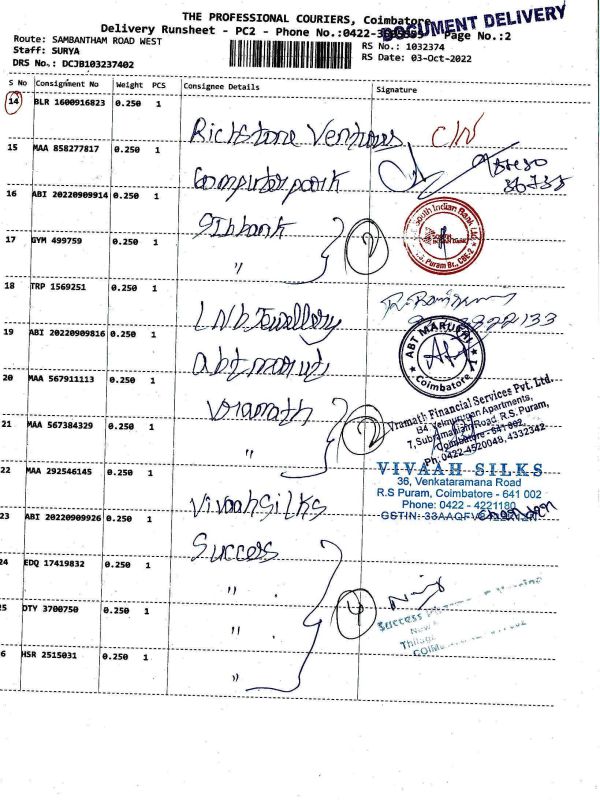 THE PROFESSIONAL COURIERS, Coimbatore
DOCUMENT DELIVERY
Delivery Runsheet - PC2 - Phone No.:0422- Page No.:2
Route: SAMBANTHAM ROAD WEST
RS No.: 1032374
Staff: SURYA
RS Date: 03-Oct-2022
DRS No.: DCJB103237402
S No Consignment No Weight PCS Consignee Details Signature
14 BLR 1600916823 0.250 1 Richstone Ventures C/N
15 MAA 858277817 0.250 1 Computer park
16 ABI 20220909914 0.250 1 SIb bank
South Indian Bank Ltd
R.S. Puram Br., CBE-2
17 GYM 499759 0.250 1 " 2
18 TRP 1569251 0.250 1 LNB Jewellery
19 ABI 20220909816 0.250 1 abt maruti
ABT MARUTHI
Coimbatore
20 MAA 567911113 0.250 1 Vramath
Vramath Financial Services Pvt. Ltd.
84, Velmurugan Apartments,
7, Subramaniam Road, R.S. Puram,
Coimbatore - 641 002,
Ph: 0422-4520048, 4332342
21 MAA 567384329 0.250 1 " 2
22 MAA 292546145 0.250 1 Vivaah Silks
VIVAAH SILKS
36, Venkataramana Road
R.S Puram, Coimbatore - 641 002
Phone: 0422 - 4221180
GSTIN: 33AAQFV
23 ABI 20220909926 0.250 1 Success
24 EDQ 17419832 0.250 1 "
4
Success
25 DTY 3700750 0.250 1 "
26 HSR 2515031 0.250 1 "